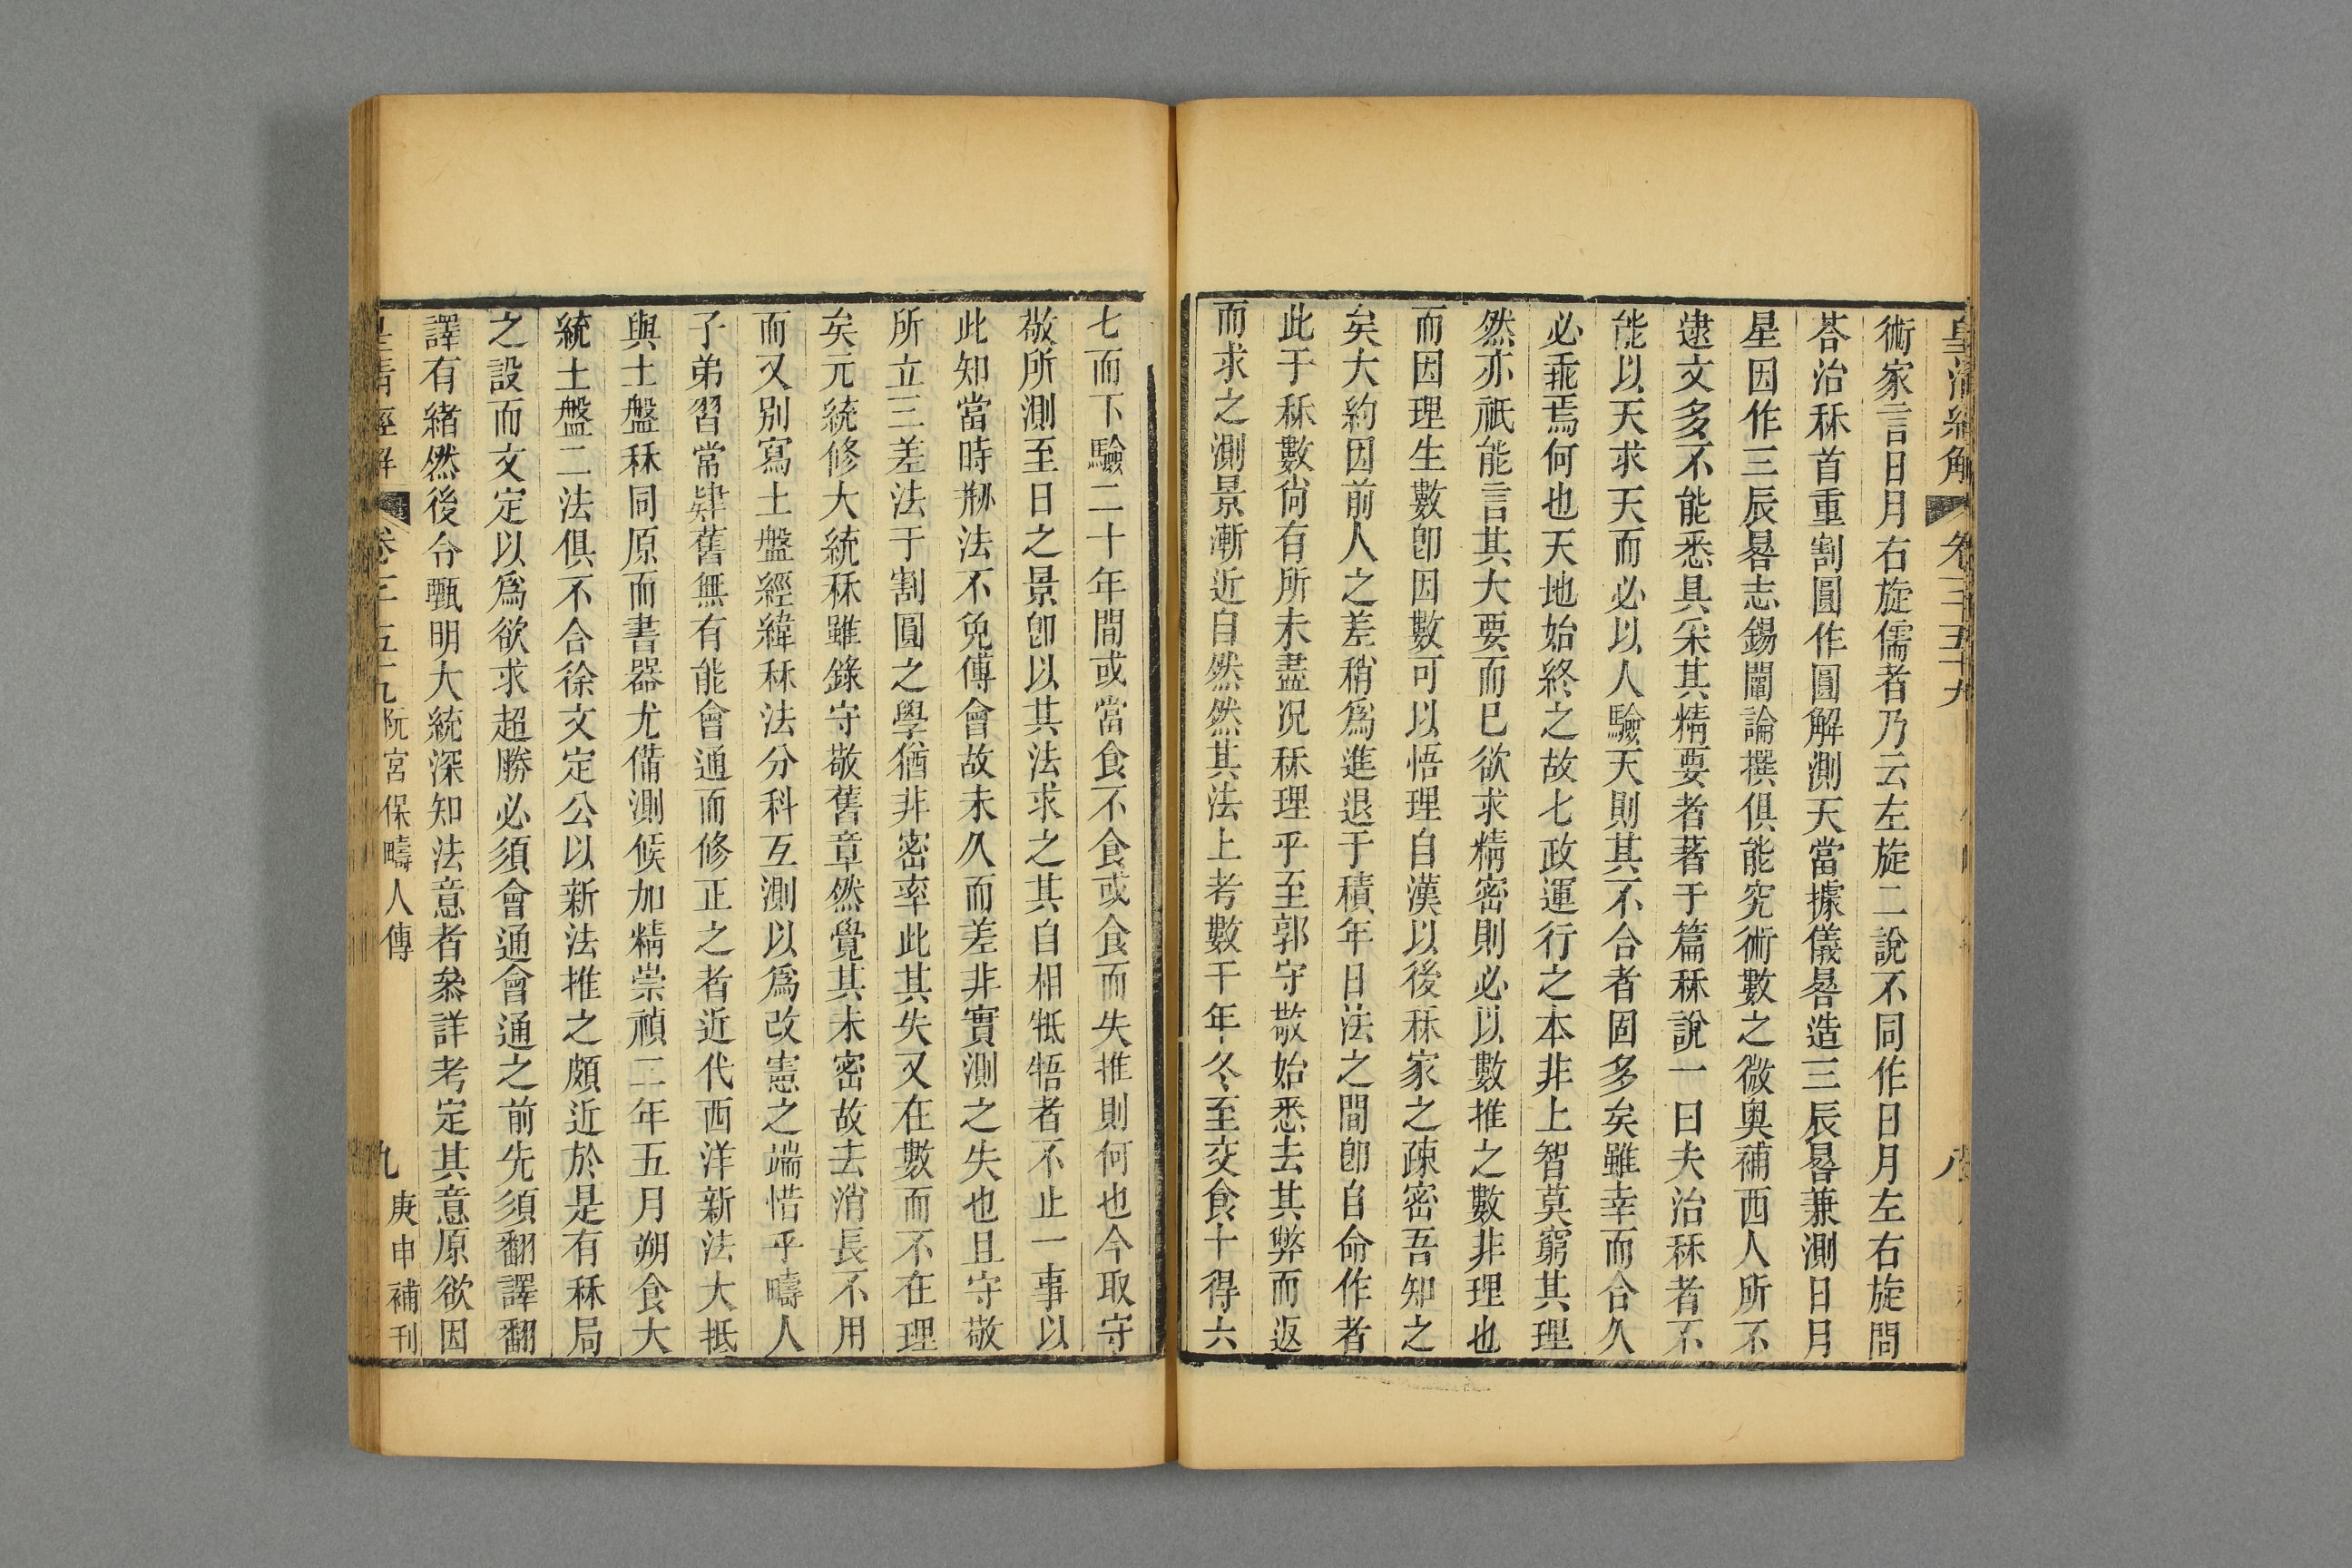 皇清經解 卷三千五十九 八
術家言日月右旋儒者乃云左旋二說不同作日月左右旋問
荅治秝首重割圓作圓解測天當據儀晷造三辰晷兼測日月
星因作三辰晷志錫闡論撰俱能究術數之微奧補西人所不
逮文多不能悉具采其精要者著于篇秝說一曰夫治秝者不
能以天求天而必以人驗天則其不合者固多矣雖幸而合久
必乖焉何也天地始終之故七政運行之本非上智莫窮其理
然亦祇能言其大要而已欲求精密則必以數推之數非理也
而因理生數卽因數可以悟理自漢以後秝家之疎密吾知之
矣大約因前人之差稍爲進退于積年日法之間卽自命作者
此于秝數尙有所未盡况秝理乎至郭守敬始悉去其弊而返
而求之測景漸近自然然其法上考數千年冬至交食十得六
七而下驗二十年間或當食不食或食而失推則何也今取守
敬所測至日之景卽以其法求之其自相牴牾者不止一事以
此知當時剙法不免傅會故未久而差非實測之失也且守敬
所立三差法于割圓之學猶非密率此其失又在數而不在理
矣元統修大統秝雖錄守敬舊章然覺其未密故去消長不用
而又別寫土盤經緯秝法分科互測以爲改憲之端惜乎疇人
子弟習常肄舊無有能會通而修正之者近代西洋新法大抵
與土盤秝同原而書器尤備測候加精崇禎二年五月朔食大
統土盤二法俱不合徐文定公以新法推之頗近於是有秝局
之設而文定以爲欲求超勝必須會通會通之前先須翻譯翻
譯有緖然後令甄明大統深知法意者叅詳考定其意原欲因
皇淸經解 卷三千五十九 阮宮保疇人傳 九 庚申補刊